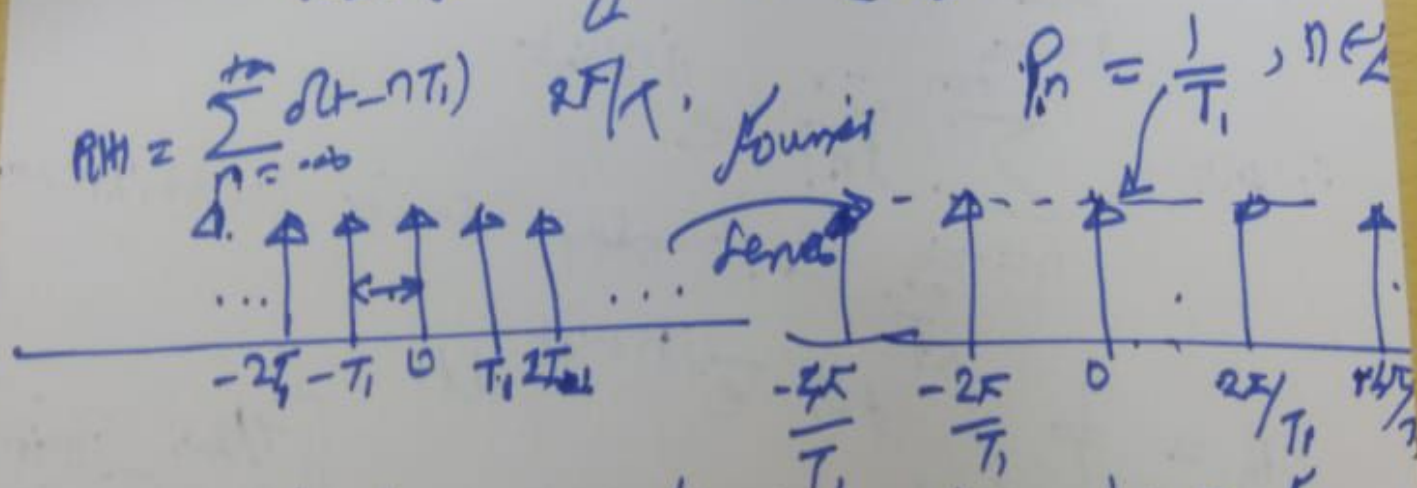 P(t) = Σ δ(t-nT₁)
+∞
n=-∞
2π/T₁
Fourier
Series
Pn = 1/T₁, n∈Z
... ...
-2T₁ -T₁ 0 T₁ 2T₁
-4π/T₁ -2π/T₁ 0 2π/T₁ +4π/T₁